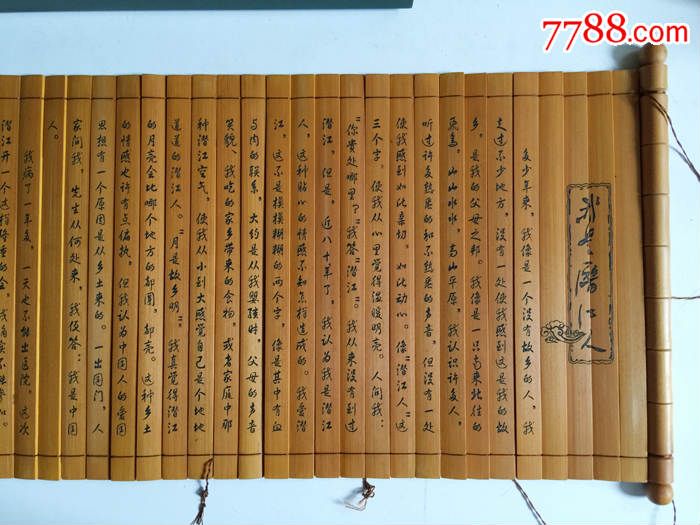 7788.com
我是潛江人
多少年来，我像是一个没有故乡的人，我
走过不少地方，没有一处使我感到这是我的故
乡，是我的父母之邦。我像是一只南来北往的
飞鸟。山山水水，高山平原，我认识许多人，
听过许多熟悉的和不熟悉的声音，但没有一处
使我感到如此亲切，如此动心。像“潜江人”这
三个字，使我从心里觉得温暖明亮。人问我：
“你贵处哪里？”我答“潜江”。我从来没有到过
潜江，但是，近八十年了，我认为我是潜江
人，这种贴心的情感不知怎样造成的。我爱潜
江，这不是模模糊糊的两个字，像是其中有血
与肉的联系。大约是从我婴孩时，父母的声音
笑貌、我吃的家乡带来的食物，或者家庭中那
种潜江空气，使我从小到大感觉自己是个地地
道道的潜江人。“月是故乡明”，我真觉得潜江
的月亮会比哪个地方的都圆，都亮。这种乡土
的情感也许有点偏执，但我认为中国人的爱国
思想有一个原因是从乡土来的。一出国门，人
家问我，先生从何处来，我便答：我是中国
人。
我病了一年多，一天也不能出医院。这次
潜江开一个这样隆重的会，我确实不能